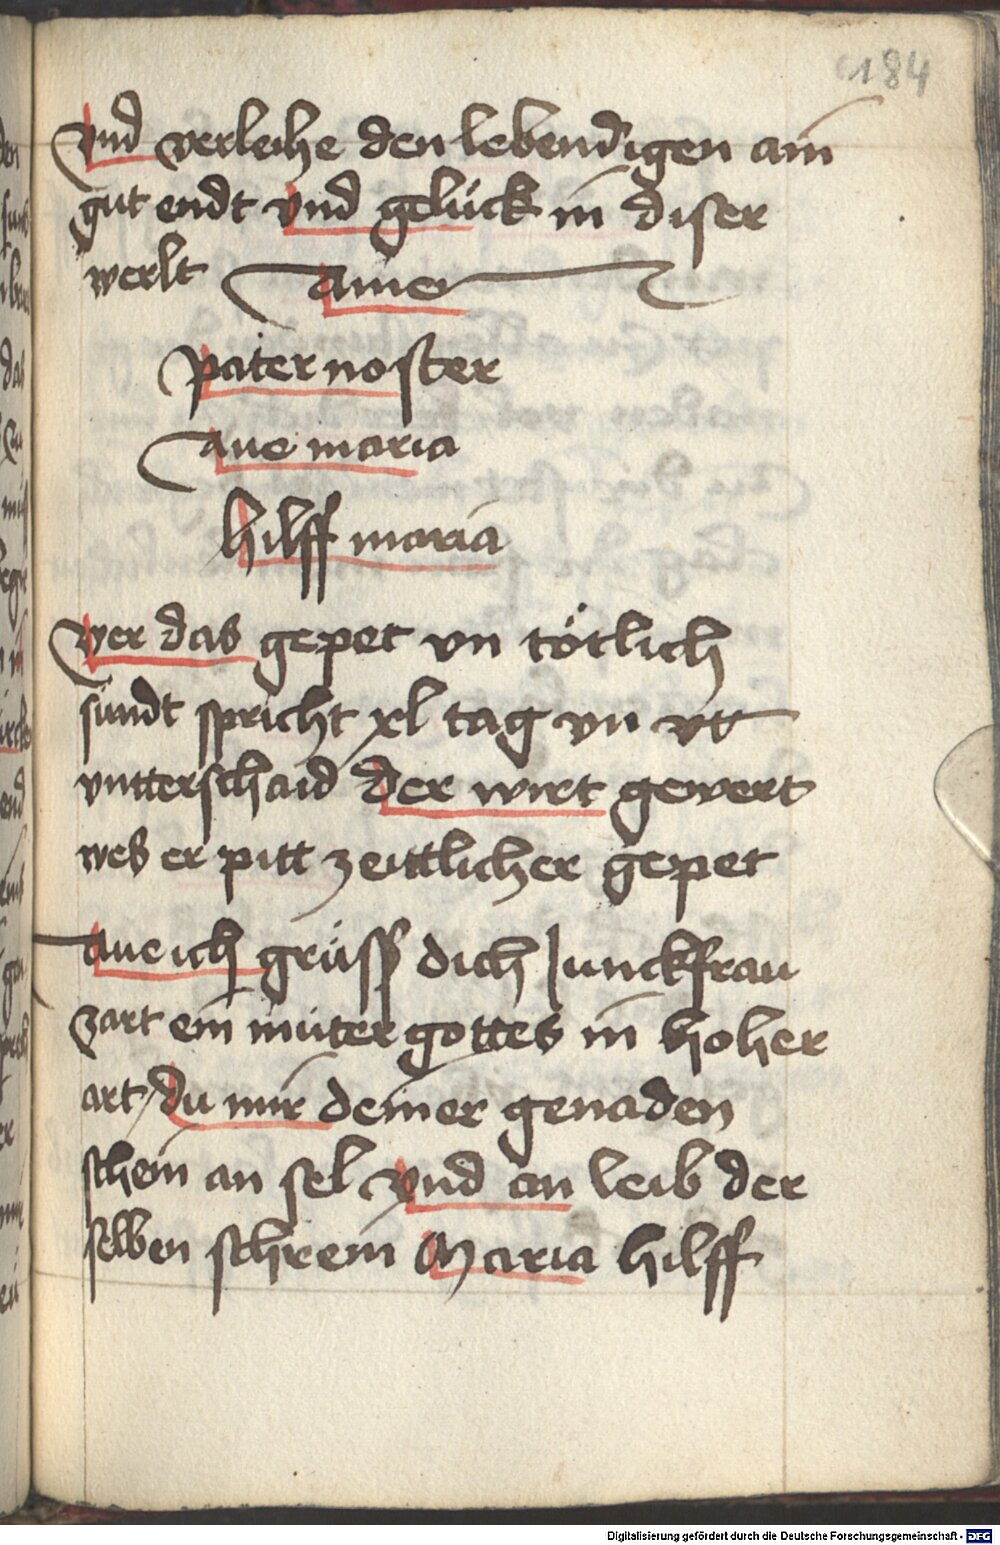 184
vnd verleihe den lebendigen ain
gut endt vnd gelück in diser
werlt Amen
pater noster
Aue maria
hilff maria
wer das gepet vn tötlich
sündt spricht xl tag vn
vntterschaid der wirt gewert
wes er pitt zeittlicher gepet
Aue ich grüss dich Junckfrau
zart ein müter gottes in hoher
art / du mir deiner genaden
schein an sel vnd an leib der
selben schrein Maria hilff
Digitalisierung gefördert durch die Deutsche Forschungsgemeinschaft - DFG